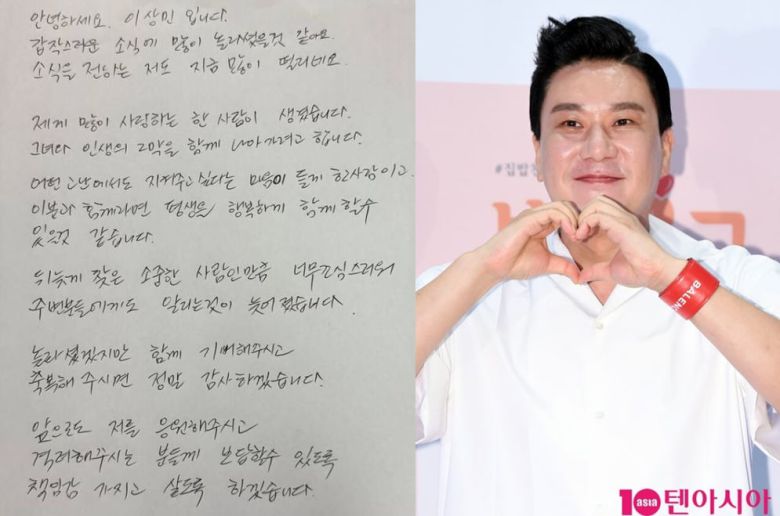 안녕하세요. 이상민 입니다.
갑작스러운 소식에 많이 놀라셨을것 같아요.
소식을 전하는 저도 지금 많이 떨리네요.
제게 많이 사랑하는 한 사람이 생겼습니다.
그녀와 인생의 2막을 함께 나아가려고 합니다.
어떤 고난에서도 지켜주고 싶다는 마음이 들게 한 사람이고.
이분과 함께라면 평생을 행복하게 함께 할수
있을것 같습니다.
뒤늦게 찾은 소중한 사람인만큼 너무 조심스러워
주변분들에게도 알리는것이 늦어졌습니다.
놀라셨겠지만 함께 기뻐해주시고
축복해 주시면 정말 감사하겠습니다.
앞으로도 저를 응원해주시고
격려해주시는 분들께 보답할수 있도록
책임감 가지고 살도록 하겠습니다.
#집밥
BALEN
10asia 텐아시아